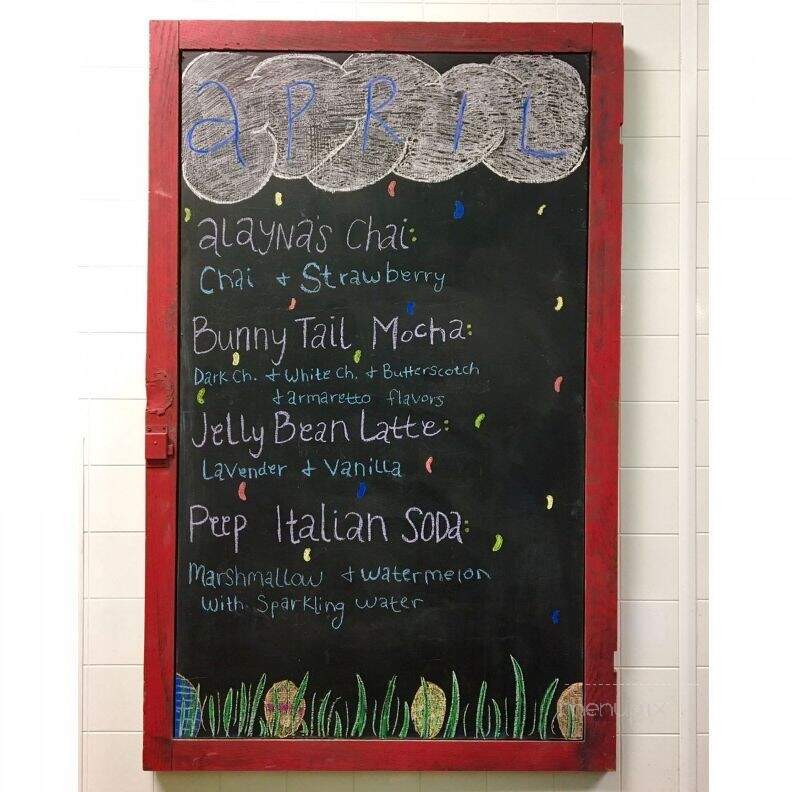 aPRIL
aLayNa's Chai:
Chai + Strawberry
Bunny Tail Mocha:
Dark Ch. + White Ch. + Butterscotch
+ armaretto flavors
Jelly Bean Latte:
Lavender + Vanilla
Peep Italian SODa:
Marshmallow + watermelon
with Sparkling water
menupix